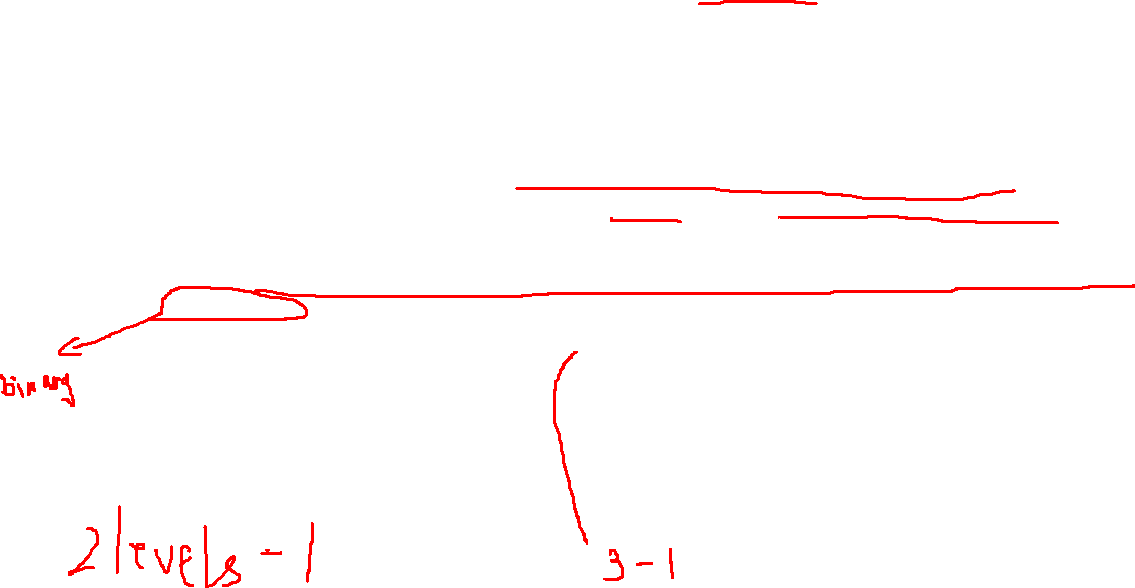 binary
2 levels - 1
3 - 1